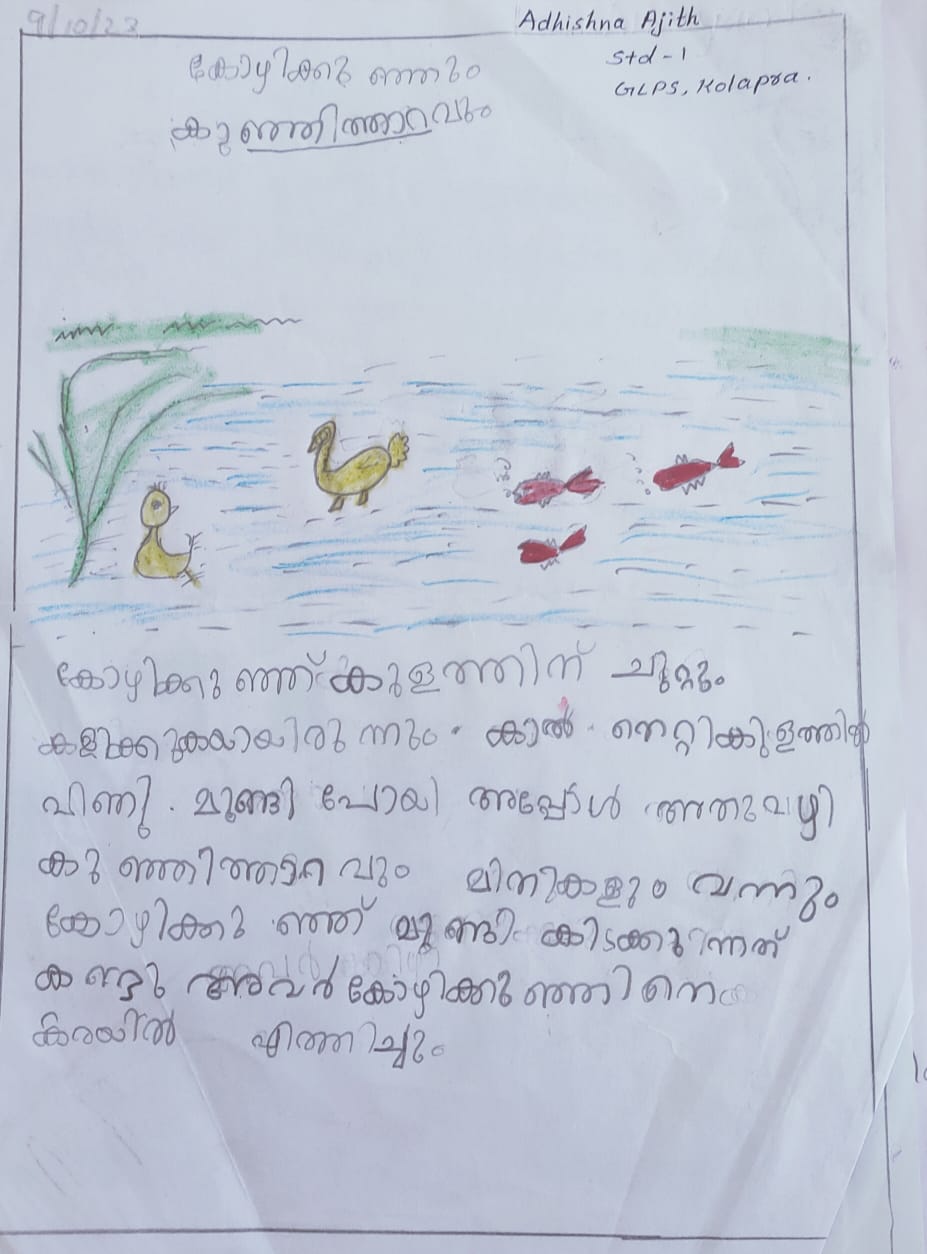 9/10/23
Adhishna Ajith
Std-1
GLPS, Kolapra.
കോഴിക്കു ഞ്ഞും
കുഞ്ഞിത്താറവും
കോഴിക്കു ഞ്ഞ് കുളത്തിന് ചുറ്റും
കളിക്കുകയായിരു ന്നും. കാൽ തെറ്റികുളത്തിൽ
വിണു. മുങ്ങി പോയി അപ്പോൾ അതുവഴി
കു ഞ്ഞിത്താറ വും മിനുകളും വന്നും
കോഴിക്കു ഞ്ഞ് മുങ്ങി കിടക്കുന്നത്
കണ്ടു അവർ കോഴിക്കു ഞ്ഞിനെ
കരയിൽ എത്തിച്ചും